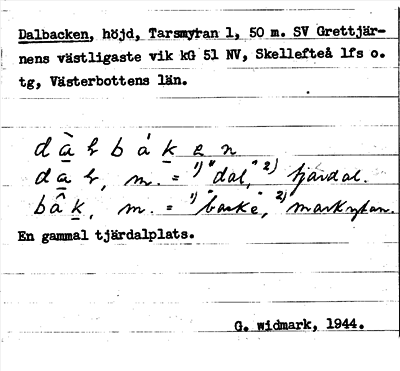 Dalbacken, höjd, Tarsmyran 1, 50 m. SV Grettjär-
nens västligaste vik kG 51 NV, Skellefteå lfs o.
tg, Västerbottens län.
m. = 1) "dal," 2) tjärdal.
m. = 1) "backe", 2) markytan.
En gammal tjärdalplats.
G. widmark, 1944.